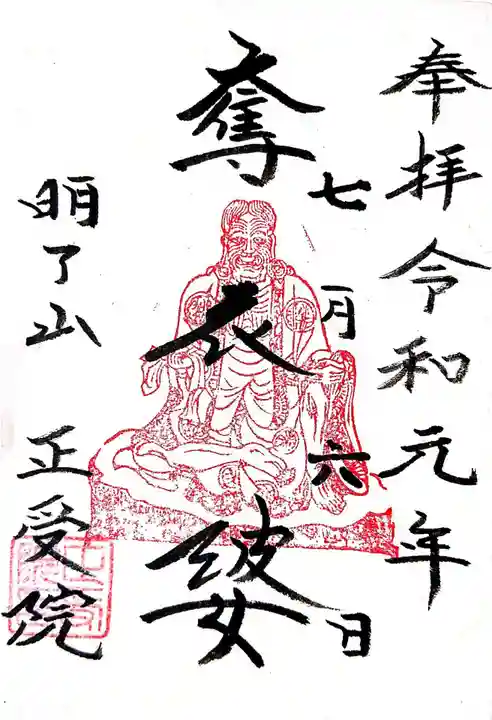 奉拝令和元年
七月六日
奪衣婆
明了山 正受院